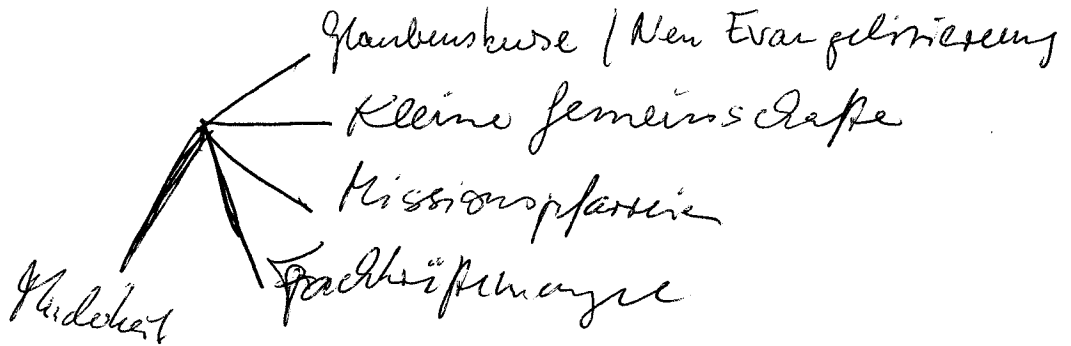 Glaubenskurse / Neu Evangelisierung
Kleine Gemeinschafte
Missionspfarreien
Fachkräftemangel